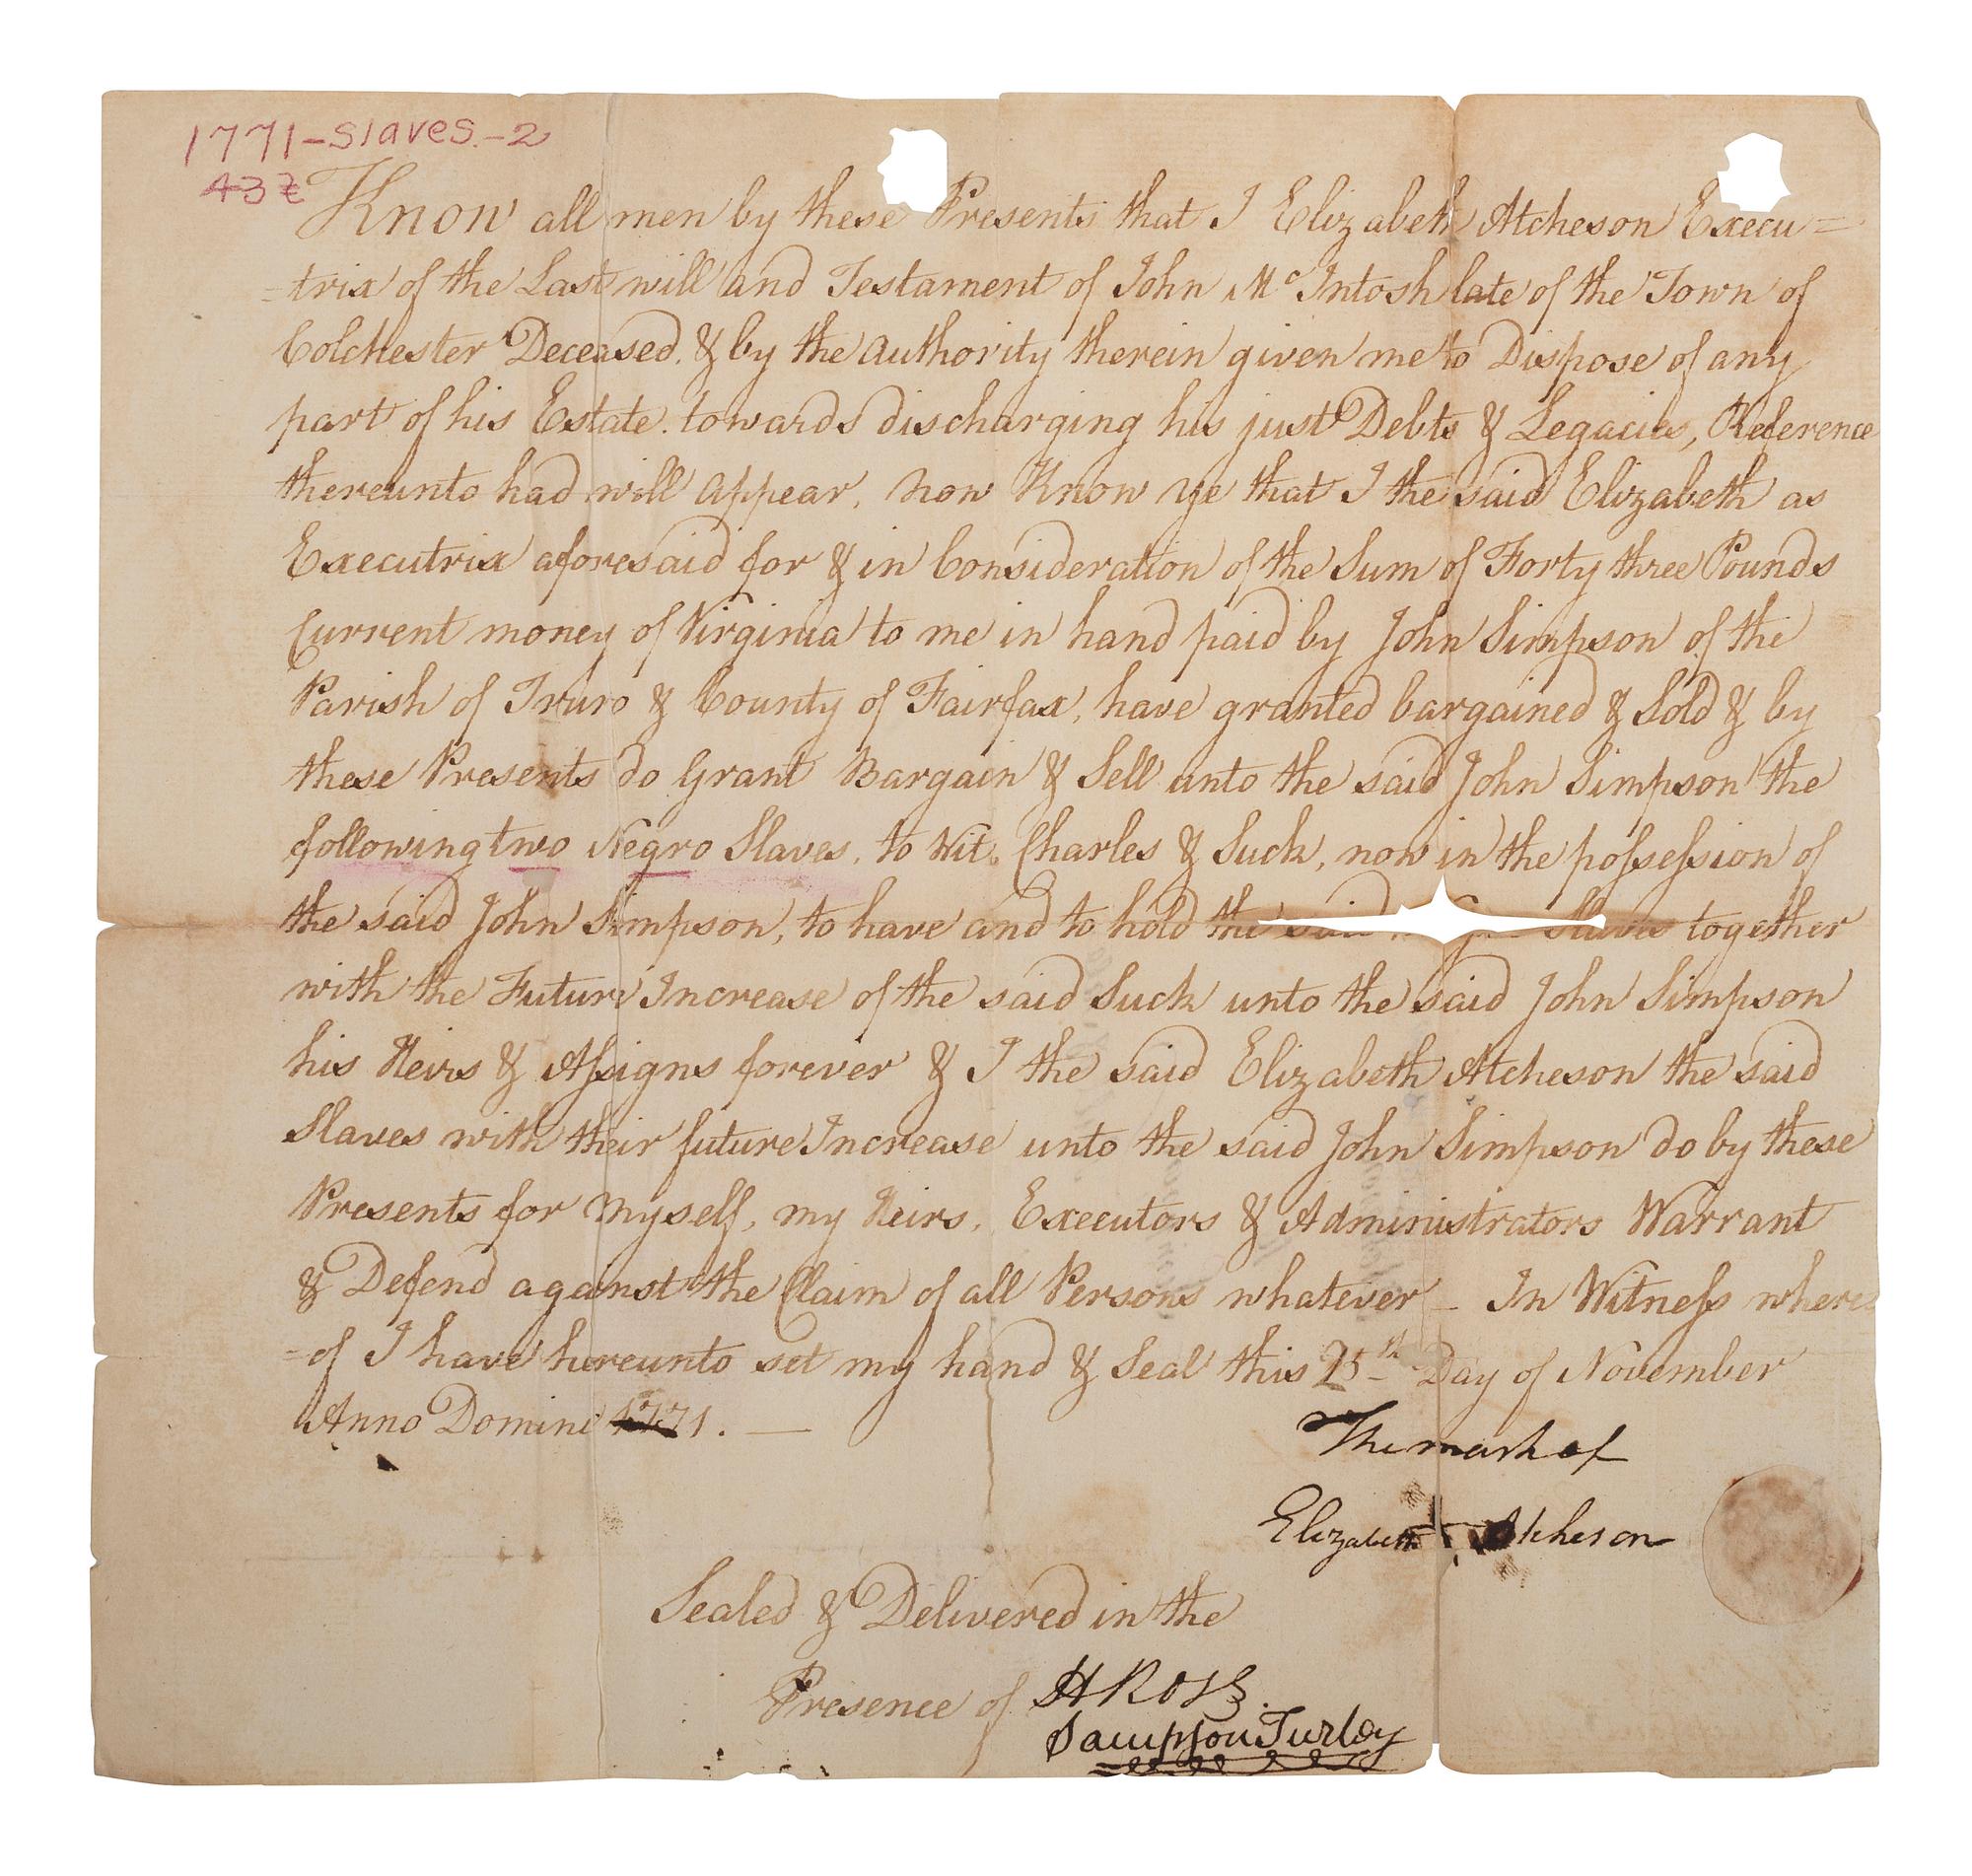 1771-Slaves.-2
43£
Know all men by these Presents that I Elizabeth Atcheson Execu=
=trix of the Last will and Testament of John Mc Intosh late of the Town of
Colchester Deceased. & by the authority therein given me to Dispose of any
part of his Estate. towards discharging his just Debts & Legacies, Reference
thereunto had will appear. now Know ye that I the said Elizabeth as
Executrix aforesaid for & in Consideration of the Sum of Forty three Pounds
Current money of Virginia to me in hand paid by John Simpson of the
Parish of Truro & County of Fairfax, have granted bargained & Sold & by
these Presents do Grant Bargain & Sell unto the said John Simpson the
following two Negro Slaves, to Wit. Charles & Suck, now in the possession of
the said John Simpson, to have and to hold the said Slaves together
with the Future Increase of the said Suck unto the said John Simpson
his Heirs & Assigns forever & I the said Elizabeth Atcheson the said
Slaves with their future Increase unto the said John Simpson do by these
Presents for myself, my Heirs, Executors & Administrators Warrant
& Defend against the Claim of all Persons whatever - In Witness where
=of I have hereunto set my hand & Seal this 25th Day of November
Anno Domini 1771. —
The mark of
Elizabeth + Atcheson
Sealed & Delivered in the
Presence of H Ross
Sampson Turley